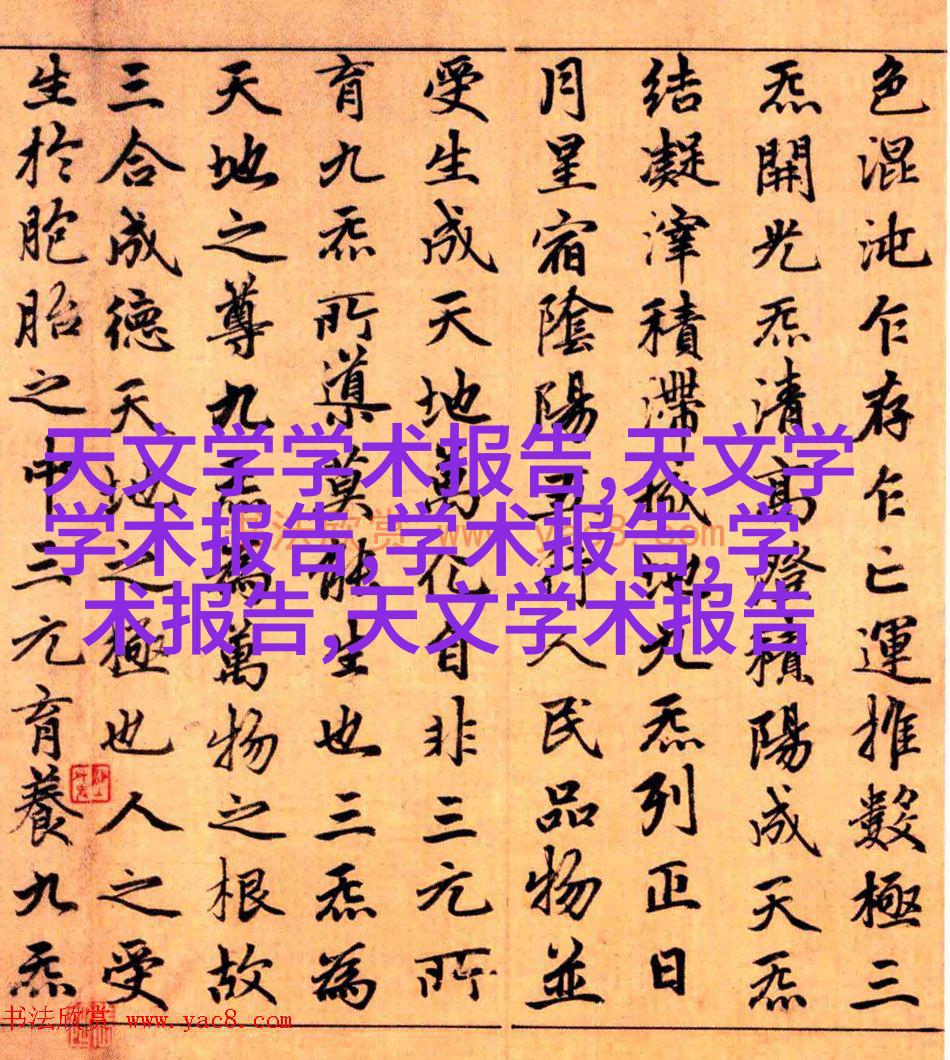 色混沌乍存乍亡運推數極三
炁開光炁清高澄積陽成天炁
結凝滓積滯成地九炁列正日
月星宿陰陽五行人民品物並
受生成天地萬化自非三元所
育九炁所導莫能生也三炁為
天地之尊九炁為萬物之根故
三合成德天地之極也人之受
生於胞胎之中三元育養九炁
天文学学术报告,天文学
学术报告,学术报告,学
术报告,天文学术报告
书法欣赏 www.yac8.com
书法欣赏 www.yac8.com